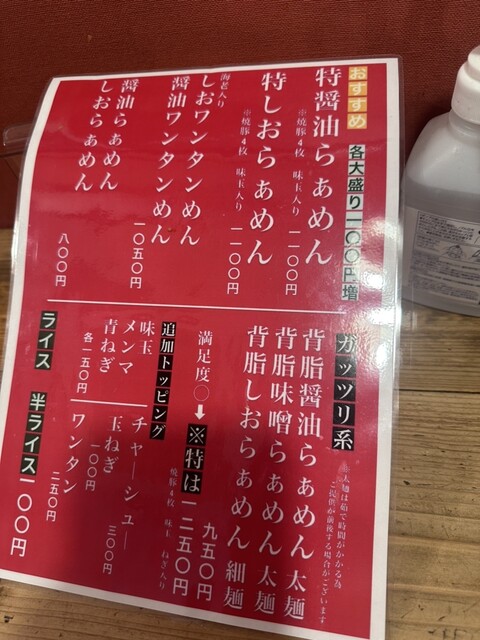 おすすめ 各大盛り一〇〇円増
特醤油らぁめん
※焼豚4枚 味玉入り 一一〇〇円
特しおらぁめん
※焼豚4枚 味玉入り 一一〇〇円
海老入り
しおワンタンめん
醤油ワンタンめん
一〇五〇円
醤油らぁめん
しおらぁめん
八〇〇円
ガッツリ系
※太麺は茹で時間がかかる為
ご提供が前後する場合がございます
背脂醤油らぁめん 太麺
背脂味噌らぁめん 太麺
背脂しおらぁめん 細麺
九五〇円
満足度〇➡※特は一二五〇円
焼豚4枚 味玉 ねぎ入り
追加トッピング
味玉
メンマ
青ねぎ
各一五〇円
チャーシュー
三〇〇円
玉ねぎ
一〇〇円
ワンタン
二五〇円
ライス 半ライス一〇〇円